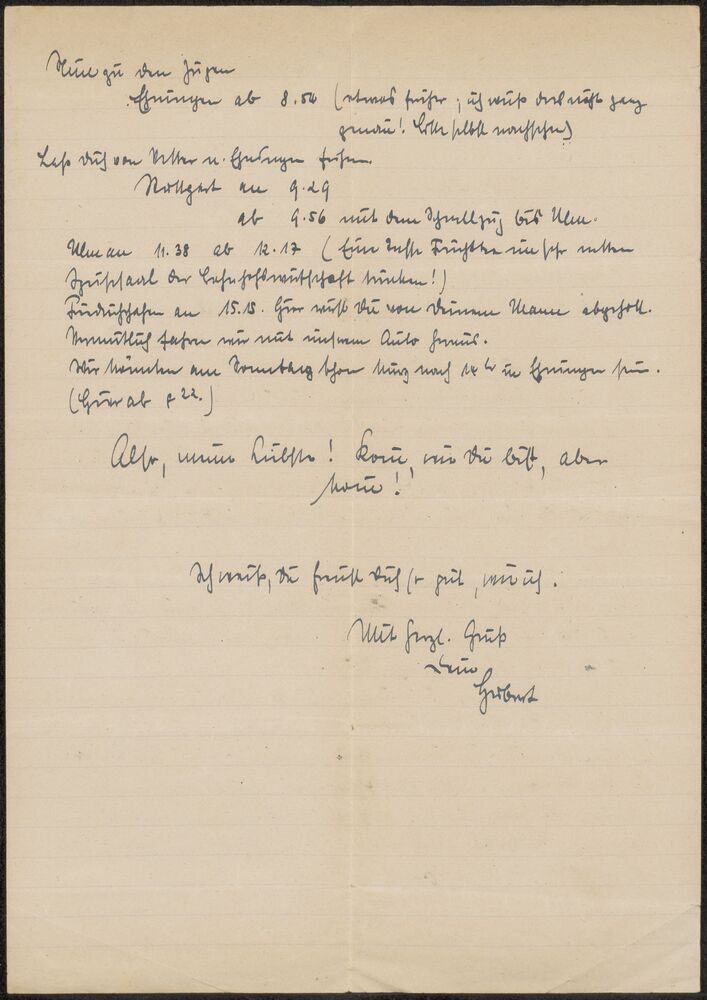 Nun zu den Zügen
Ehningen ab 8.54 (etwas früher; ich weiß das nicht ganz
genau! Bitte selbst nachsehen)
Laß Dich von Vetter n. Ehningen fahren.
Stuttgart an 9.29
ab 9.56 mit dem Schnellzug bis Ulm.
Ulm an 11.38 ab 12.17 (Eine Tasse Früchtetee im sehr netten
Speisesaal der Bahnhofswirtschaft trinken!)
Friedrichshafen an 15.15. Hier wirst Du von Deinem Manne abgeholt.
Vermutlich fahren wir mit unserem Auto heraus.
Wir könnten am Sonntag schon kurz nach 14 Uhr in Ehningen sein.
(Hier ab 8 22.)
Also, meine Liebste! Komm, wie Du bist, aber
komm!
Ich weiß, Du freust Dich so gut, wie ich.
Mit herzl. Gruß
Dein
Herbert